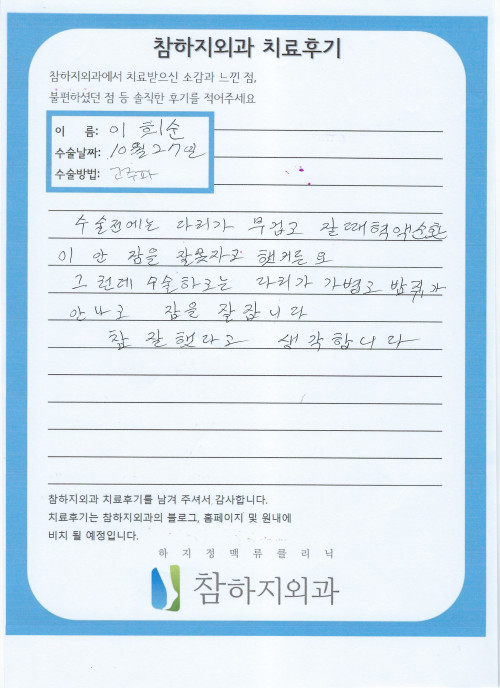 참하지외과 치료후기
참하지외과에서 치료받으신 소감과 느낀 점,
불편하셨던 점 등 솔직한 후기를 적어주세요
이 름: 이 희순
수술날짜: 10월 27일
수술방법: 고주파
수술전에는 다리가 무겁고 잘때 혁액순환
이 안 잠을 잘못자고 했거든요
그런데 수술하고는 다리가 가볍고 밤 쥐가
안나고 잠을 잘잡니다
참 잘했다고 생각합니다
참하지외과 치료후기를 남겨 주셔서 감사합니다.
치료후기는 참하지외과의 블로그, 홈페이지 및 원내에
비치 될 예정입니다.
하지정맥류클리닉
참하지외과